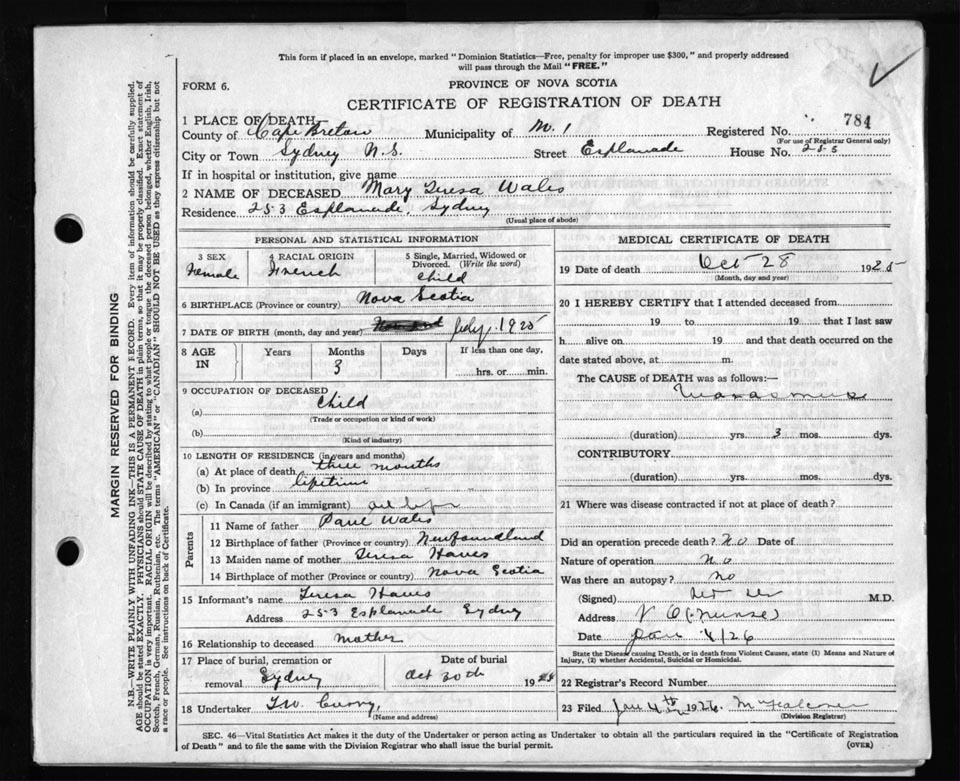 This form if placed in an envelope, marked "Dominion Statistics—Free, penalty for improper use $300," and properly addressed
will pass through the Mail "FREE."
FORM 6.
PROVINCE OF NOVA SCOTIA
CERTIFICATE OF REGISTRATION OF DEATH
1 PLACE OF DEATH—
County of Cape Breton Municipality of Registered No. 784
(For use of Registrar General only)
City or Town Sydney N.S. Street Esplanade House No. 253
If in hospital or institution, give name
2 NAME OF DECEASED Mary Teresa Wales
Residence 253 Esplanade, Sydney
(Usual place of abode)
PERSONAL AND STATISTICAL INFORMATION
3 SEX
Female
4 RACIAL ORIGIN
French
5 Single, Married, Widowed or
Divorced. (Write the word)
Child
6 BIRTHPLACE (Province or country) Nova Scotia
7 DATE OF BIRTH (month, day and year) July, 1925
8 AGE
IN
Years
Months
3
Days
If less than one day,
hrs. or min.
9 OCCUPATION OF DECEASED
(a) Child
(Trade or occupation or kind of work)
(b)
(Kind of industry)
10 LENGTH OF RESIDENCE (in years and months)
(a) At place of death three months
(b) In province lifetime
(c) In Canada (if an immigrant)
Parents
11 Name of father Paul Wales
12 Birthplace of father (Province or country) Newfoundland
13 Maiden name of mother Teresa
14 Birthplace of mother (Province or country) Nova Scotia
15 Informant's name Teresa
Address 253 Esplanade Sydney
16 Relationship to deceased mother
17 Place of burial, cremation or
removal Sydney
Date of burial
Oct 30th 19
18 Undertaker Curry,
(Name and address)
MEDICAL CERTIFICATE OF DEATH
19 Date of death Oct 28 1925
(Month, day and year)
20 I HEREBY CERTIFY that I attended deceased from
19 to 19 that I last saw
h alive on 19 and that death occurred on the
date stated above, at m.
The CAUSE of DEATH was as follows:—
Marasmus
(duration) yrs. 3 mos. dys.
CONTRIBUTORY
(duration) yrs. mos. dys.
21 Where was disease contracted if not at place of death?
Did an operation precede death? No Date of
Nature of operation No
Was there an autopsy? no
(Signed) M.D.
Address
Date Jan 4/26
State the Disease causing Death, or in death from Violent Causes, state (1) Means and Nature of
Injury, (2) whether Accidental, Suicidal or Homicidal.
22 Registrar's Record Number
23 Filed Jan 4th 1926
(Division Registrar)
SEC. 46—Vital Statistics Act makes it the duty of the Undertaker or person acting as Undertaker to obtain all the particulars required in the "Certificate of Registration
of Death" and to file the same with the Division Registrar who shall issue the burial permit.
(OVER)
MARGIN RESERVED FOR BINDING
N.B.—WRITE PLAINLY WITH UNFADING INK—THIS IS A PERMANENT RECORD. Every item of information should be carefully supplied.
AGE should be stated EXACTLY. PHYSICIANS should STATE CAUSE OF DEATH in plain terms, so that it may be properly classified. Exact statement of
OCCUPATION is very important. RACIAL ORIGIN will be described by stating to what people or tongue the deceased person belonged, whether English, Irish,
Scotch, French, German, Russian, Ruthenian, etc. The terms "AMERICAN" or "CANADIAN" SHOULD NOT BE USED as they express citizenship but not
a race or people. See instructions on back of Certificate.